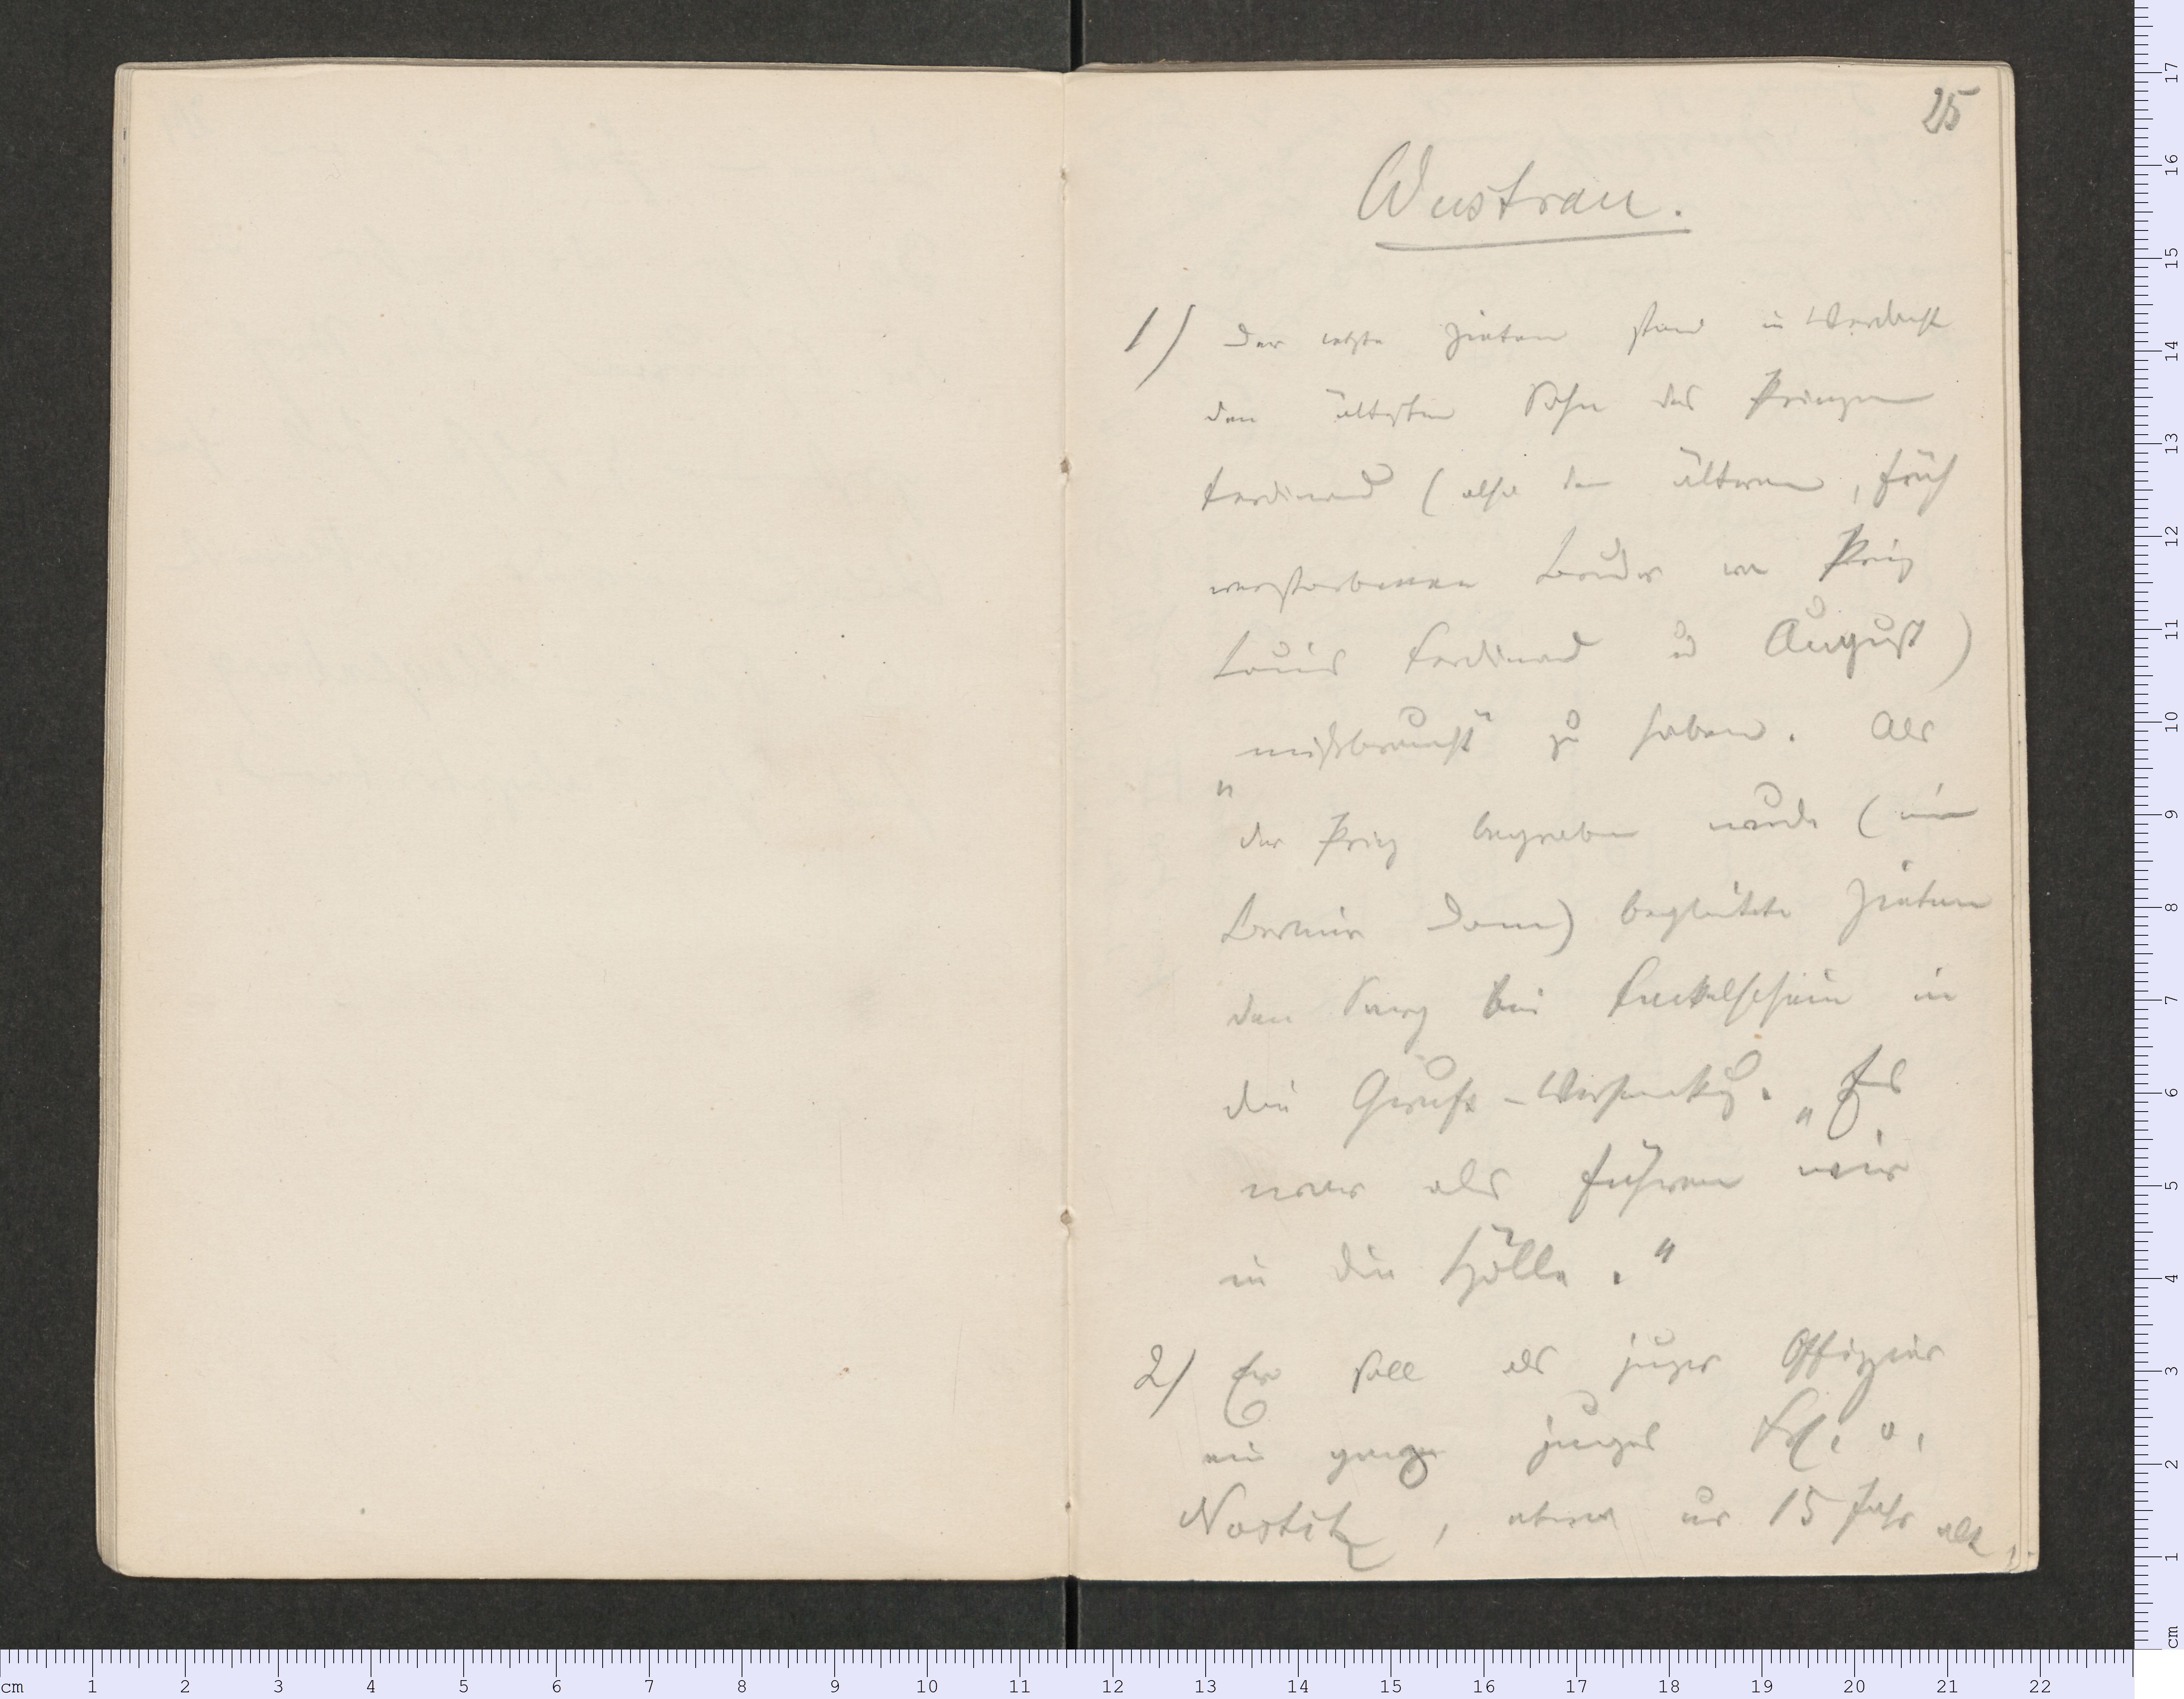 25
Wustrau.
1) Der letzte Zieten stand in Verdacht
den ältesten Sohn des Prinzen
Ferdinand (also den älteren, früh
verstorbenen Bruder von Prinz
Louis Ferdinand und August)
„mißbraucht“ zu haben. Als
der Prinz begraben wurde (im
Berliner Dom) begleitete Zieten
den Sarg bei Fackelschein in
die Gruft-Versenkung. „Es
war als führen wir
in die Hölle.“
2) Er soll als junger Offizier
ein ganz junges Frl. v.
Nostitz, etwa nur 15 Jahr alt,